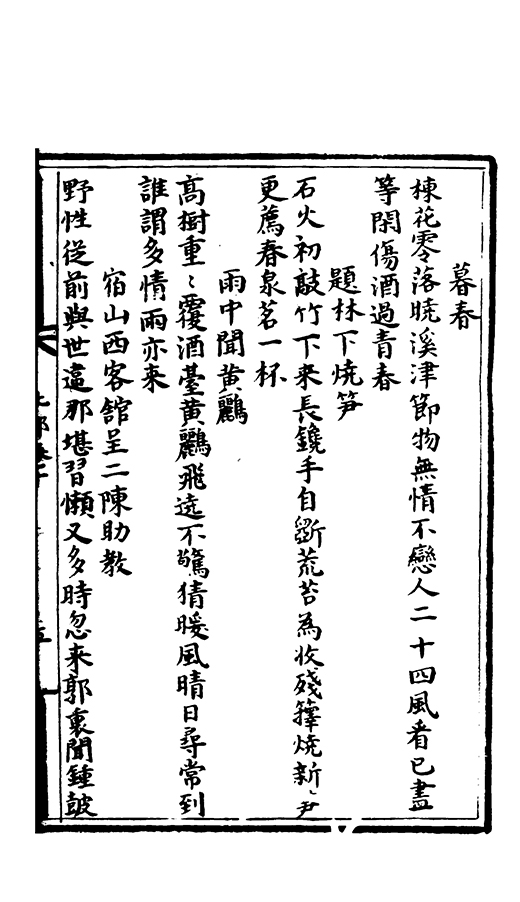 暮春
楝花零落曉溪津節物無情不戀人二十四風看已盡
等閑傷酒過青春
題林下燒笋
石火初敲竹下来長鑱手自斸荒苔為收殘籜燒新笋
更薦春泉茗一杯
雨中聞黄鸝
高樹重〻覆酒臺黄鸝飛遶不驚猜暖風晴日尋常到
誰謂多情雨亦来
宿山西客舘呈二陳助教
野性従前與世違那堪習懶又多時忽来郭裏聞鍾皷